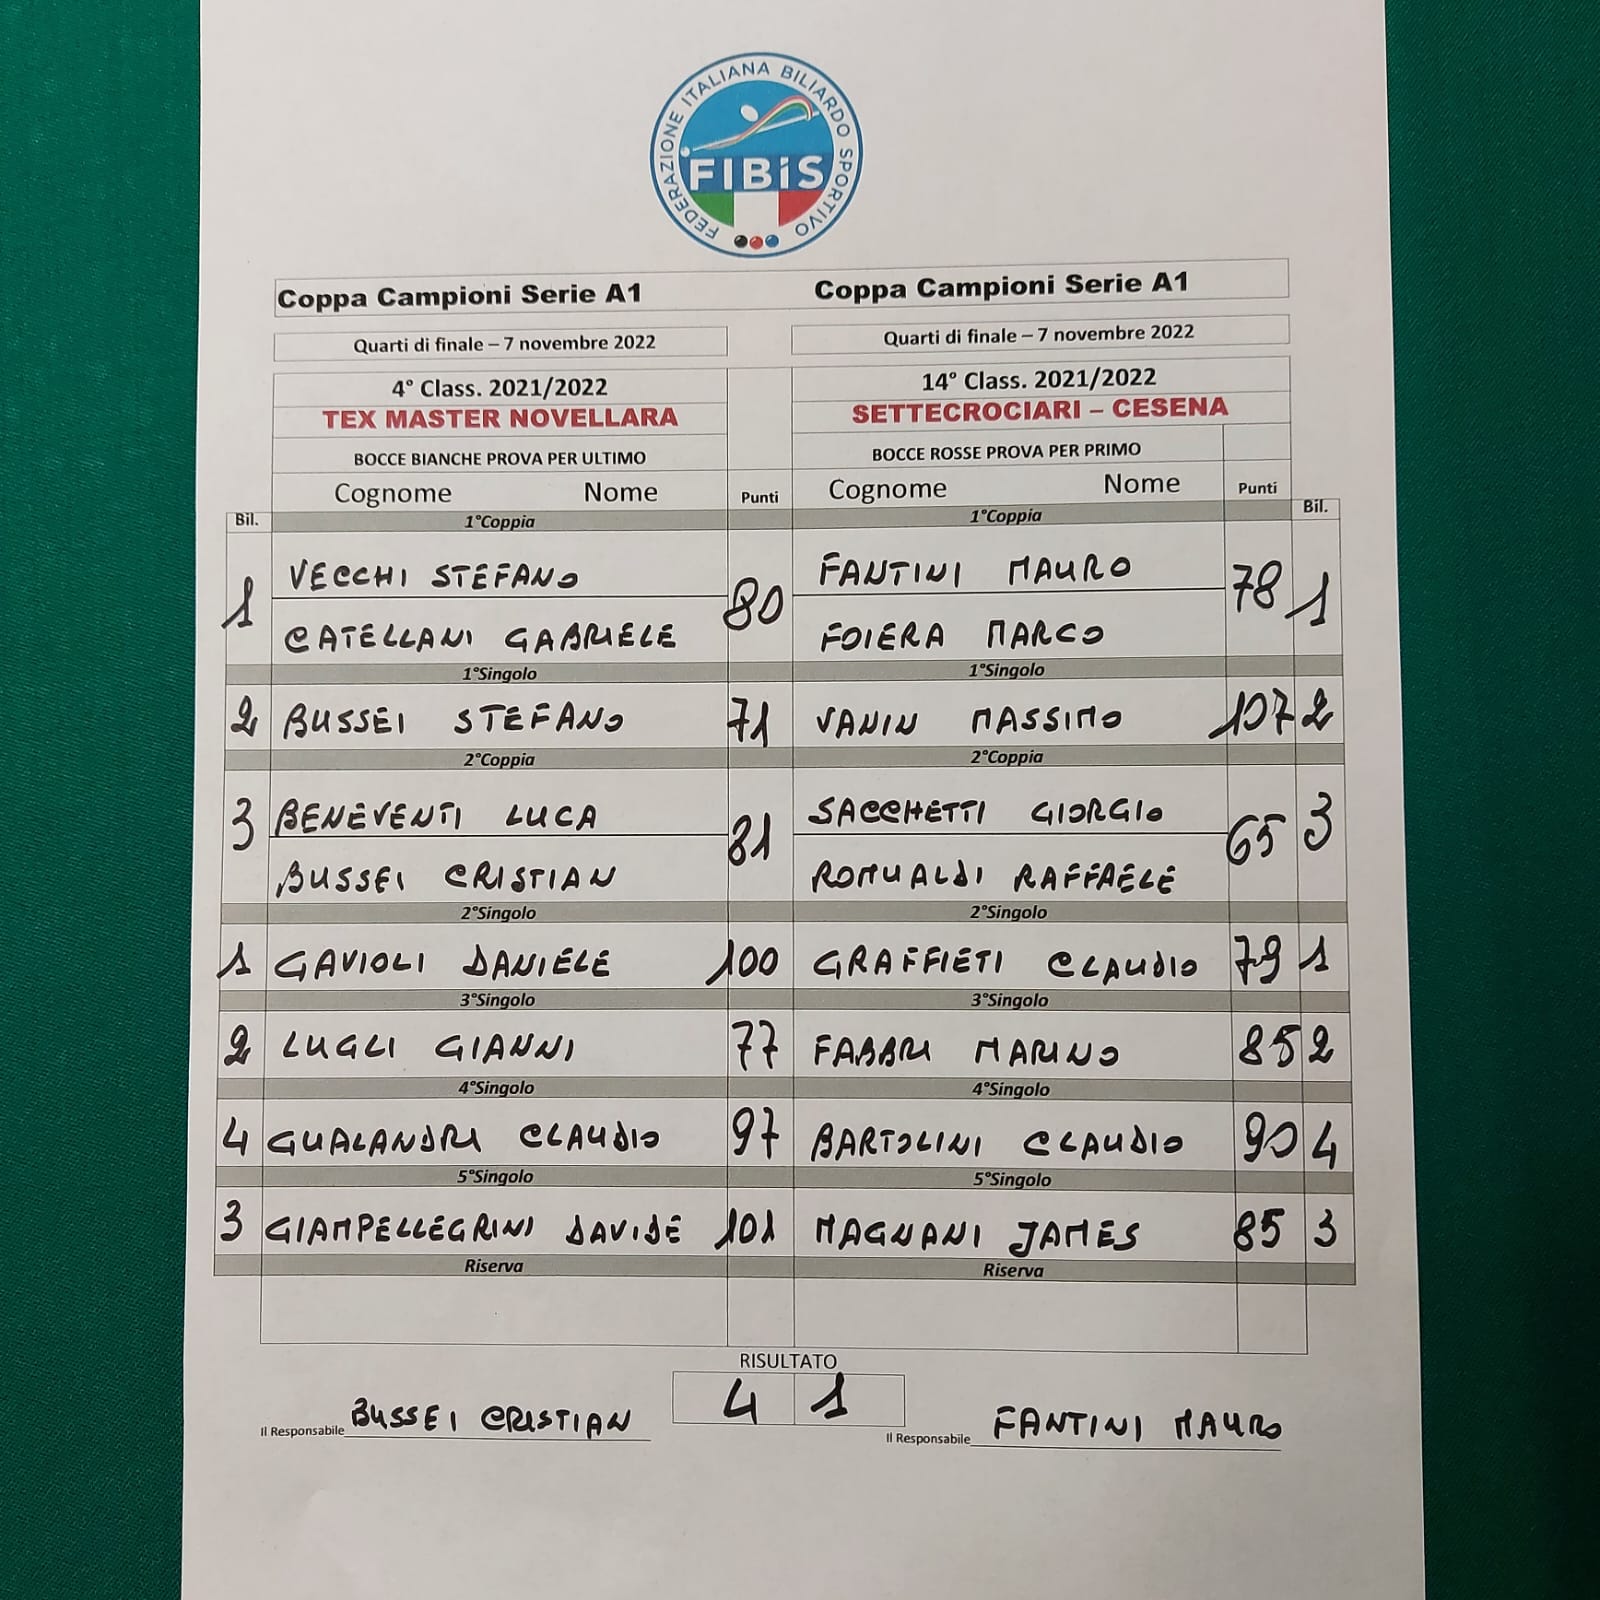 FEDERAZIONE ITALIANA BILIARDO SPORTIVO
FIBiS
Coppa Campioni Serie A1 Coppa Campioni Serie A1
Quarti di finale – 7 novembre 2022 Quarti di finale – 7 novembre 2022
4° Class. 2021/2022 14° Class. 2021/2022
TEX MASTER NOVELLARA SETTECROCIARI – CESENA
BOCCE BIANCHE PROVA PER ULTIMO BOCCE ROSSE PROVA PER PRIMO
Cognome Nome Punti Cognome Nome Punti
Bil. 1°Coppia 1°Coppia Bil.
VECCHI STEFANO FANTINI MAURO
1 80 78 1
CATELLANI GABRIELE FOIERA MARCO
1°Singolo 1°Singolo
2 BUSSEI STEFANO 71 VANIN MASSIMO 107 2
2°Coppia 2°Coppia
BENEVENTI LUCA SACCHETTI GIORGIO
3 81 65 3
BUSSEI CRISTIAN ROMUALDI RAFFAELE
2°Singolo 2°Singolo
1 GAVIOLI DANIELE 100 GRAFFIETI CLAUDIO 79 1
3°Singolo 3°Singolo
2 LUGLI GIANNI 77 FABBRI MARINO 85 2
4°Singolo 4°Singolo
4 GUALANDRI CLAUDIO 97 BARTOLINI CLAUDIO 90 4
5°Singolo 5°Singolo
3 GIAMPELLEGRINI DAVIDE 101 MAGNANI JAMES 85 3
Riserva Riserva
RISULTATO
4 1
Il Responsabile BUSSEI CRISTIAN Il Responsabile FANTINI MAURO